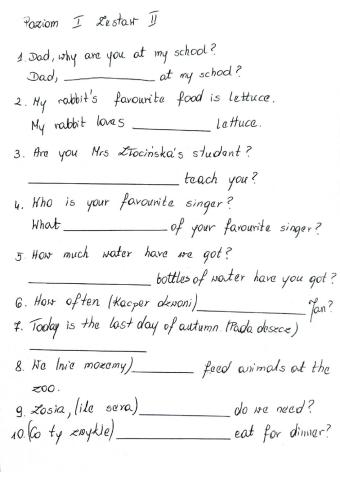 Poziom I Zestaw II
1. Dad, why are you at my school?
Dad, ____________ at my school?
2. My rabbit's favourite food is lettuce.
My rabbit loves __________ lettuce.
3. Are you Mrs Złocińska's student?
____________________ teach you?
4. Who is your favourite singer?
What ______________ of your favourite singer?
5. How much water have we got?
________________ bottles of water have you got?
6. How often (Kacper dzwoni) ______________ Jan?
7. Today is the last day of autumn. (Pada deszcz)
________________
8. We (nie możemy) ________ feed animals at the
zoo.
9. Zosia, (ile sera) ____________ do we need?
10. (Co ty zwykle) ______________ eat for dinner?